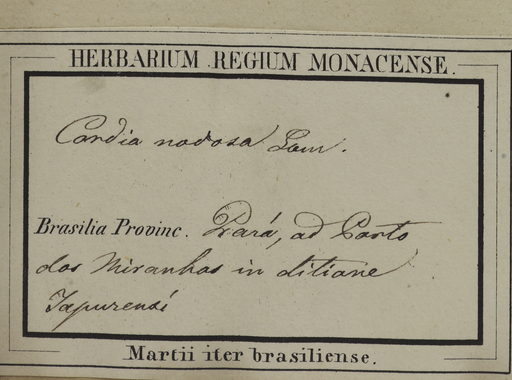 HERBARIUM REGIUM MONACENSE.
Cordia nodosa Lam.
Brasilia Provinc. Pará, ad Porto
dos Miranhas in
Japurensi
Martii iter brasiliense.